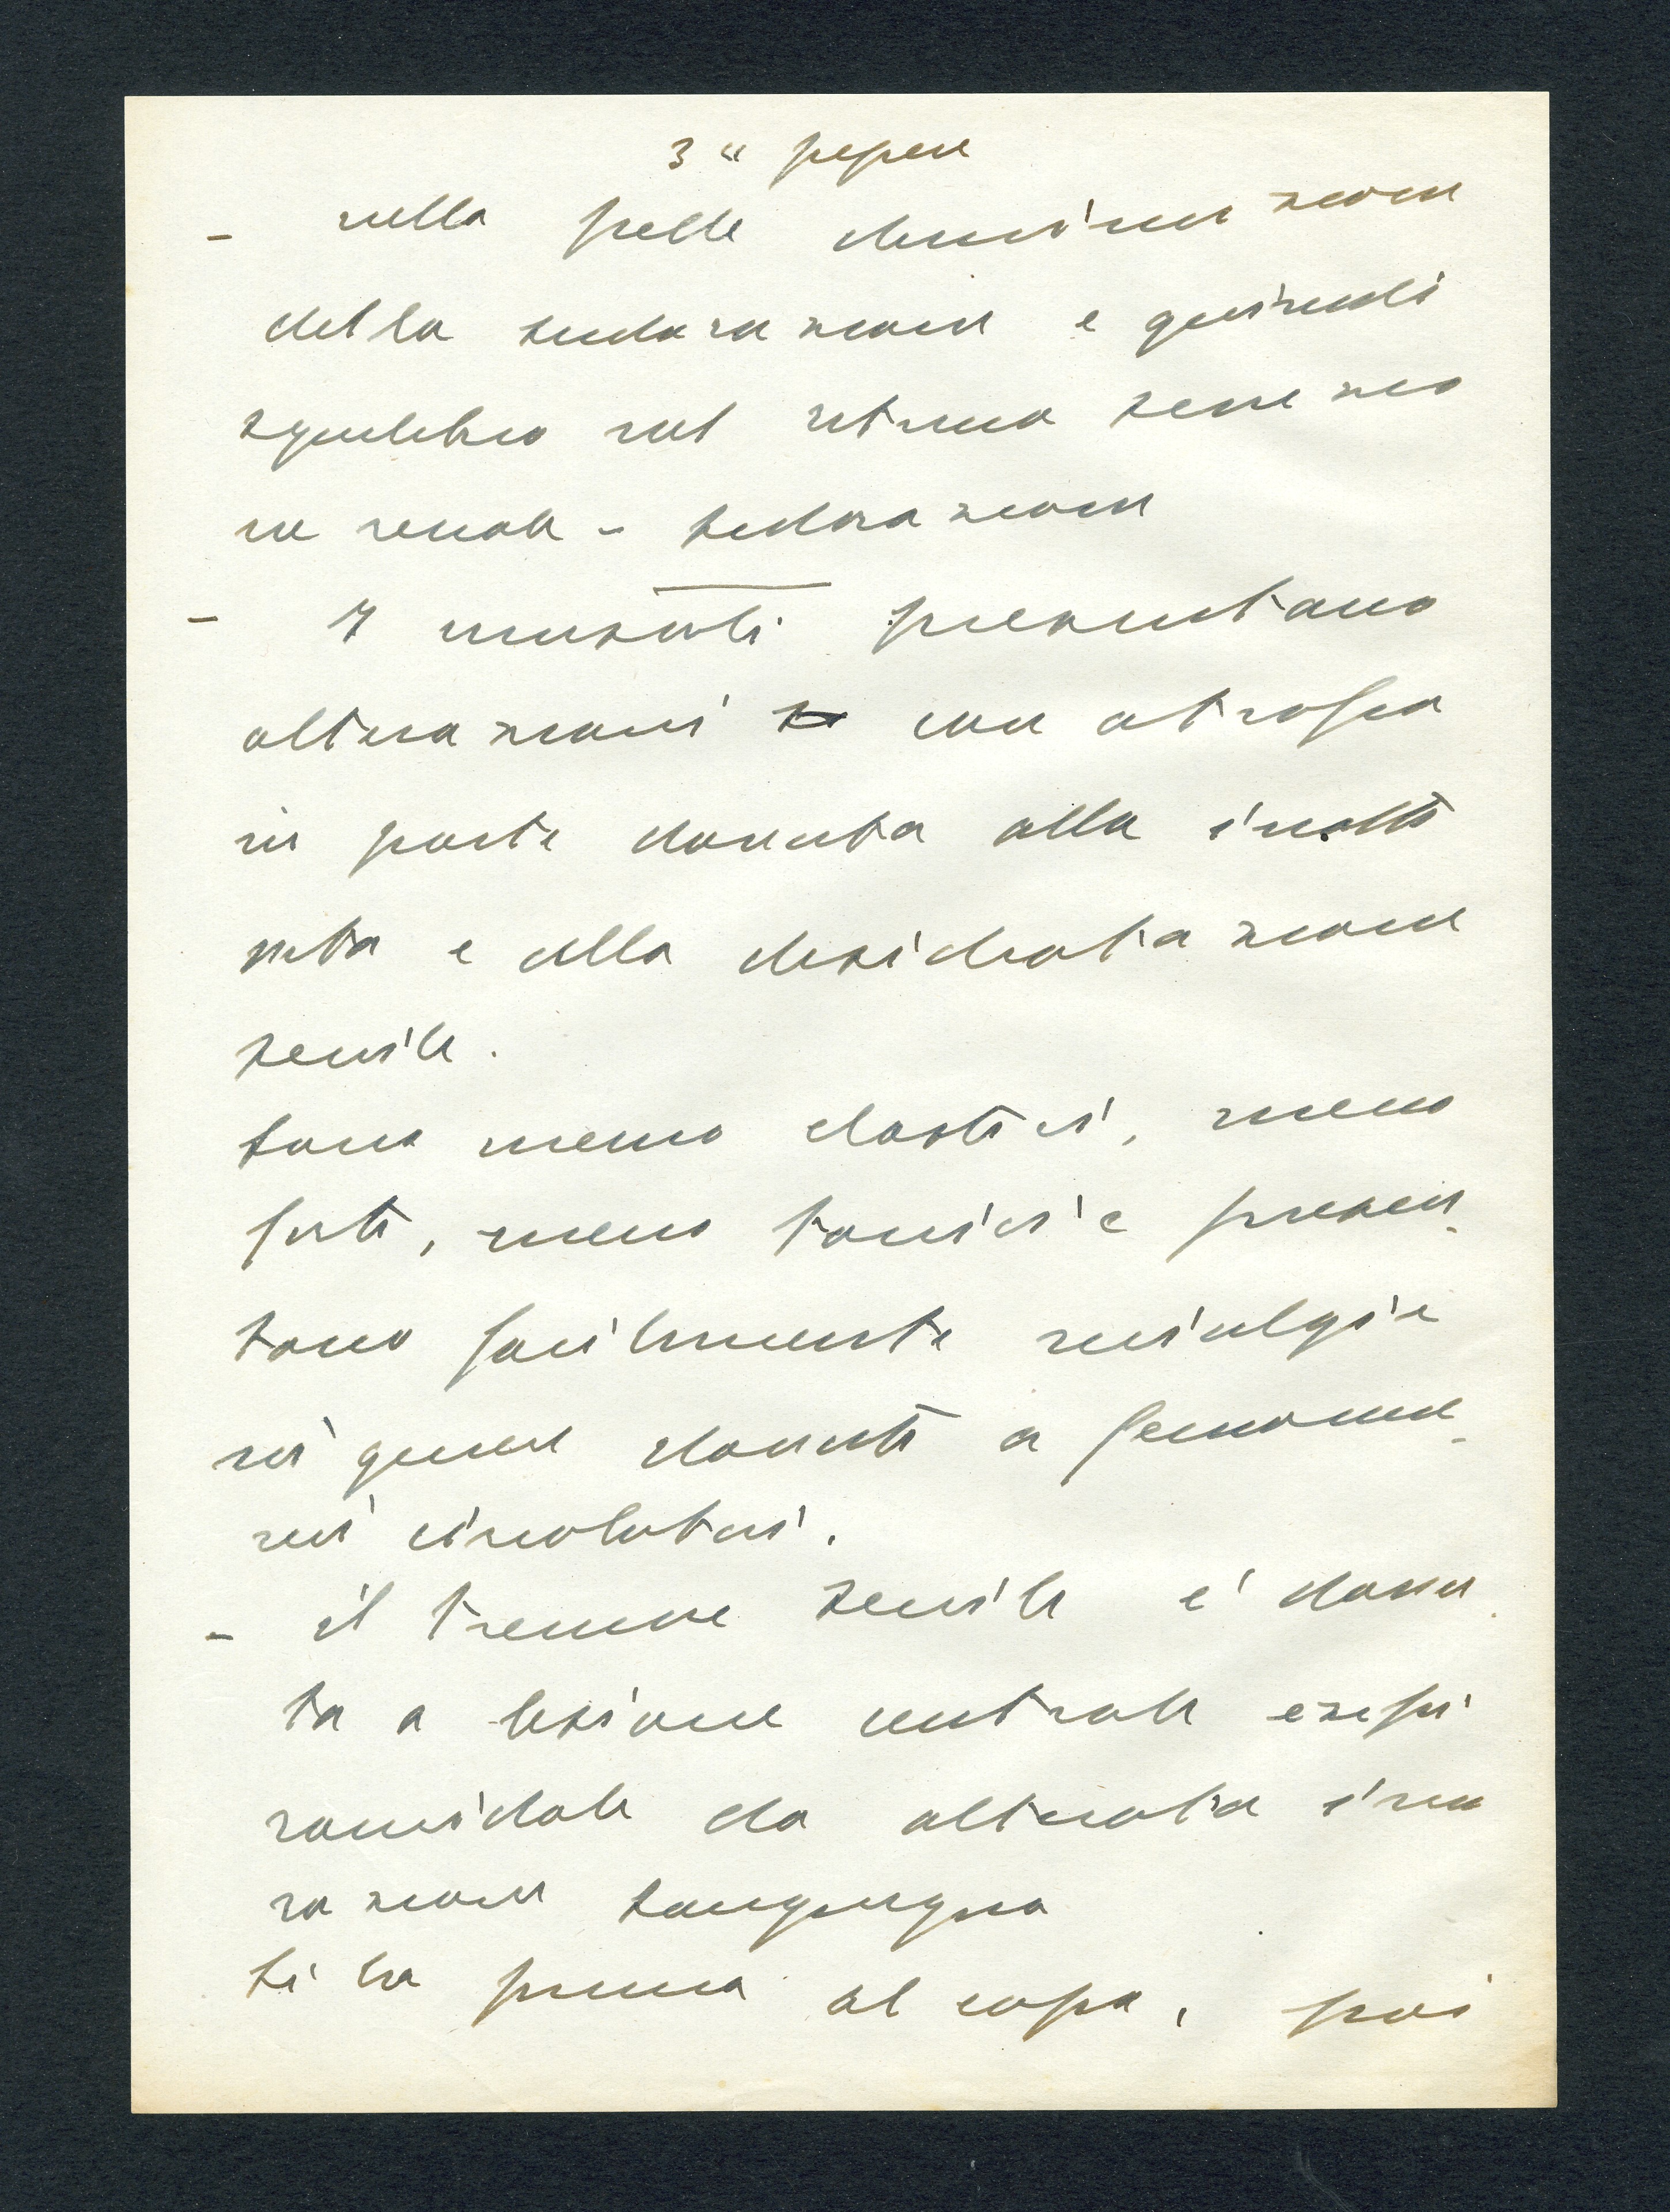 3ª
- nella pelle diminuzione
della sudorazione e quindi
squilibrio nel ritmo
renale - sudorazione
- I muscoli presentano
alterazioni con atrofia
in parte dovuta alla inatti
vità e alla desidratazione
senile.
Sono meno elastici, meno
forti, meno tonici e presen-
tano facilmente mialgie
in genere dovute a fenome-
ni circolatori.
- il tremore senile è dovu
to a lesione centrale exspi
ramidale da alterata irro
razione sanguigna
Si ha prima al capo, poi